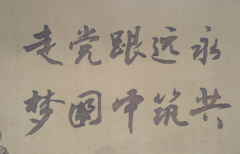 永远跟党走
共筑中國梦